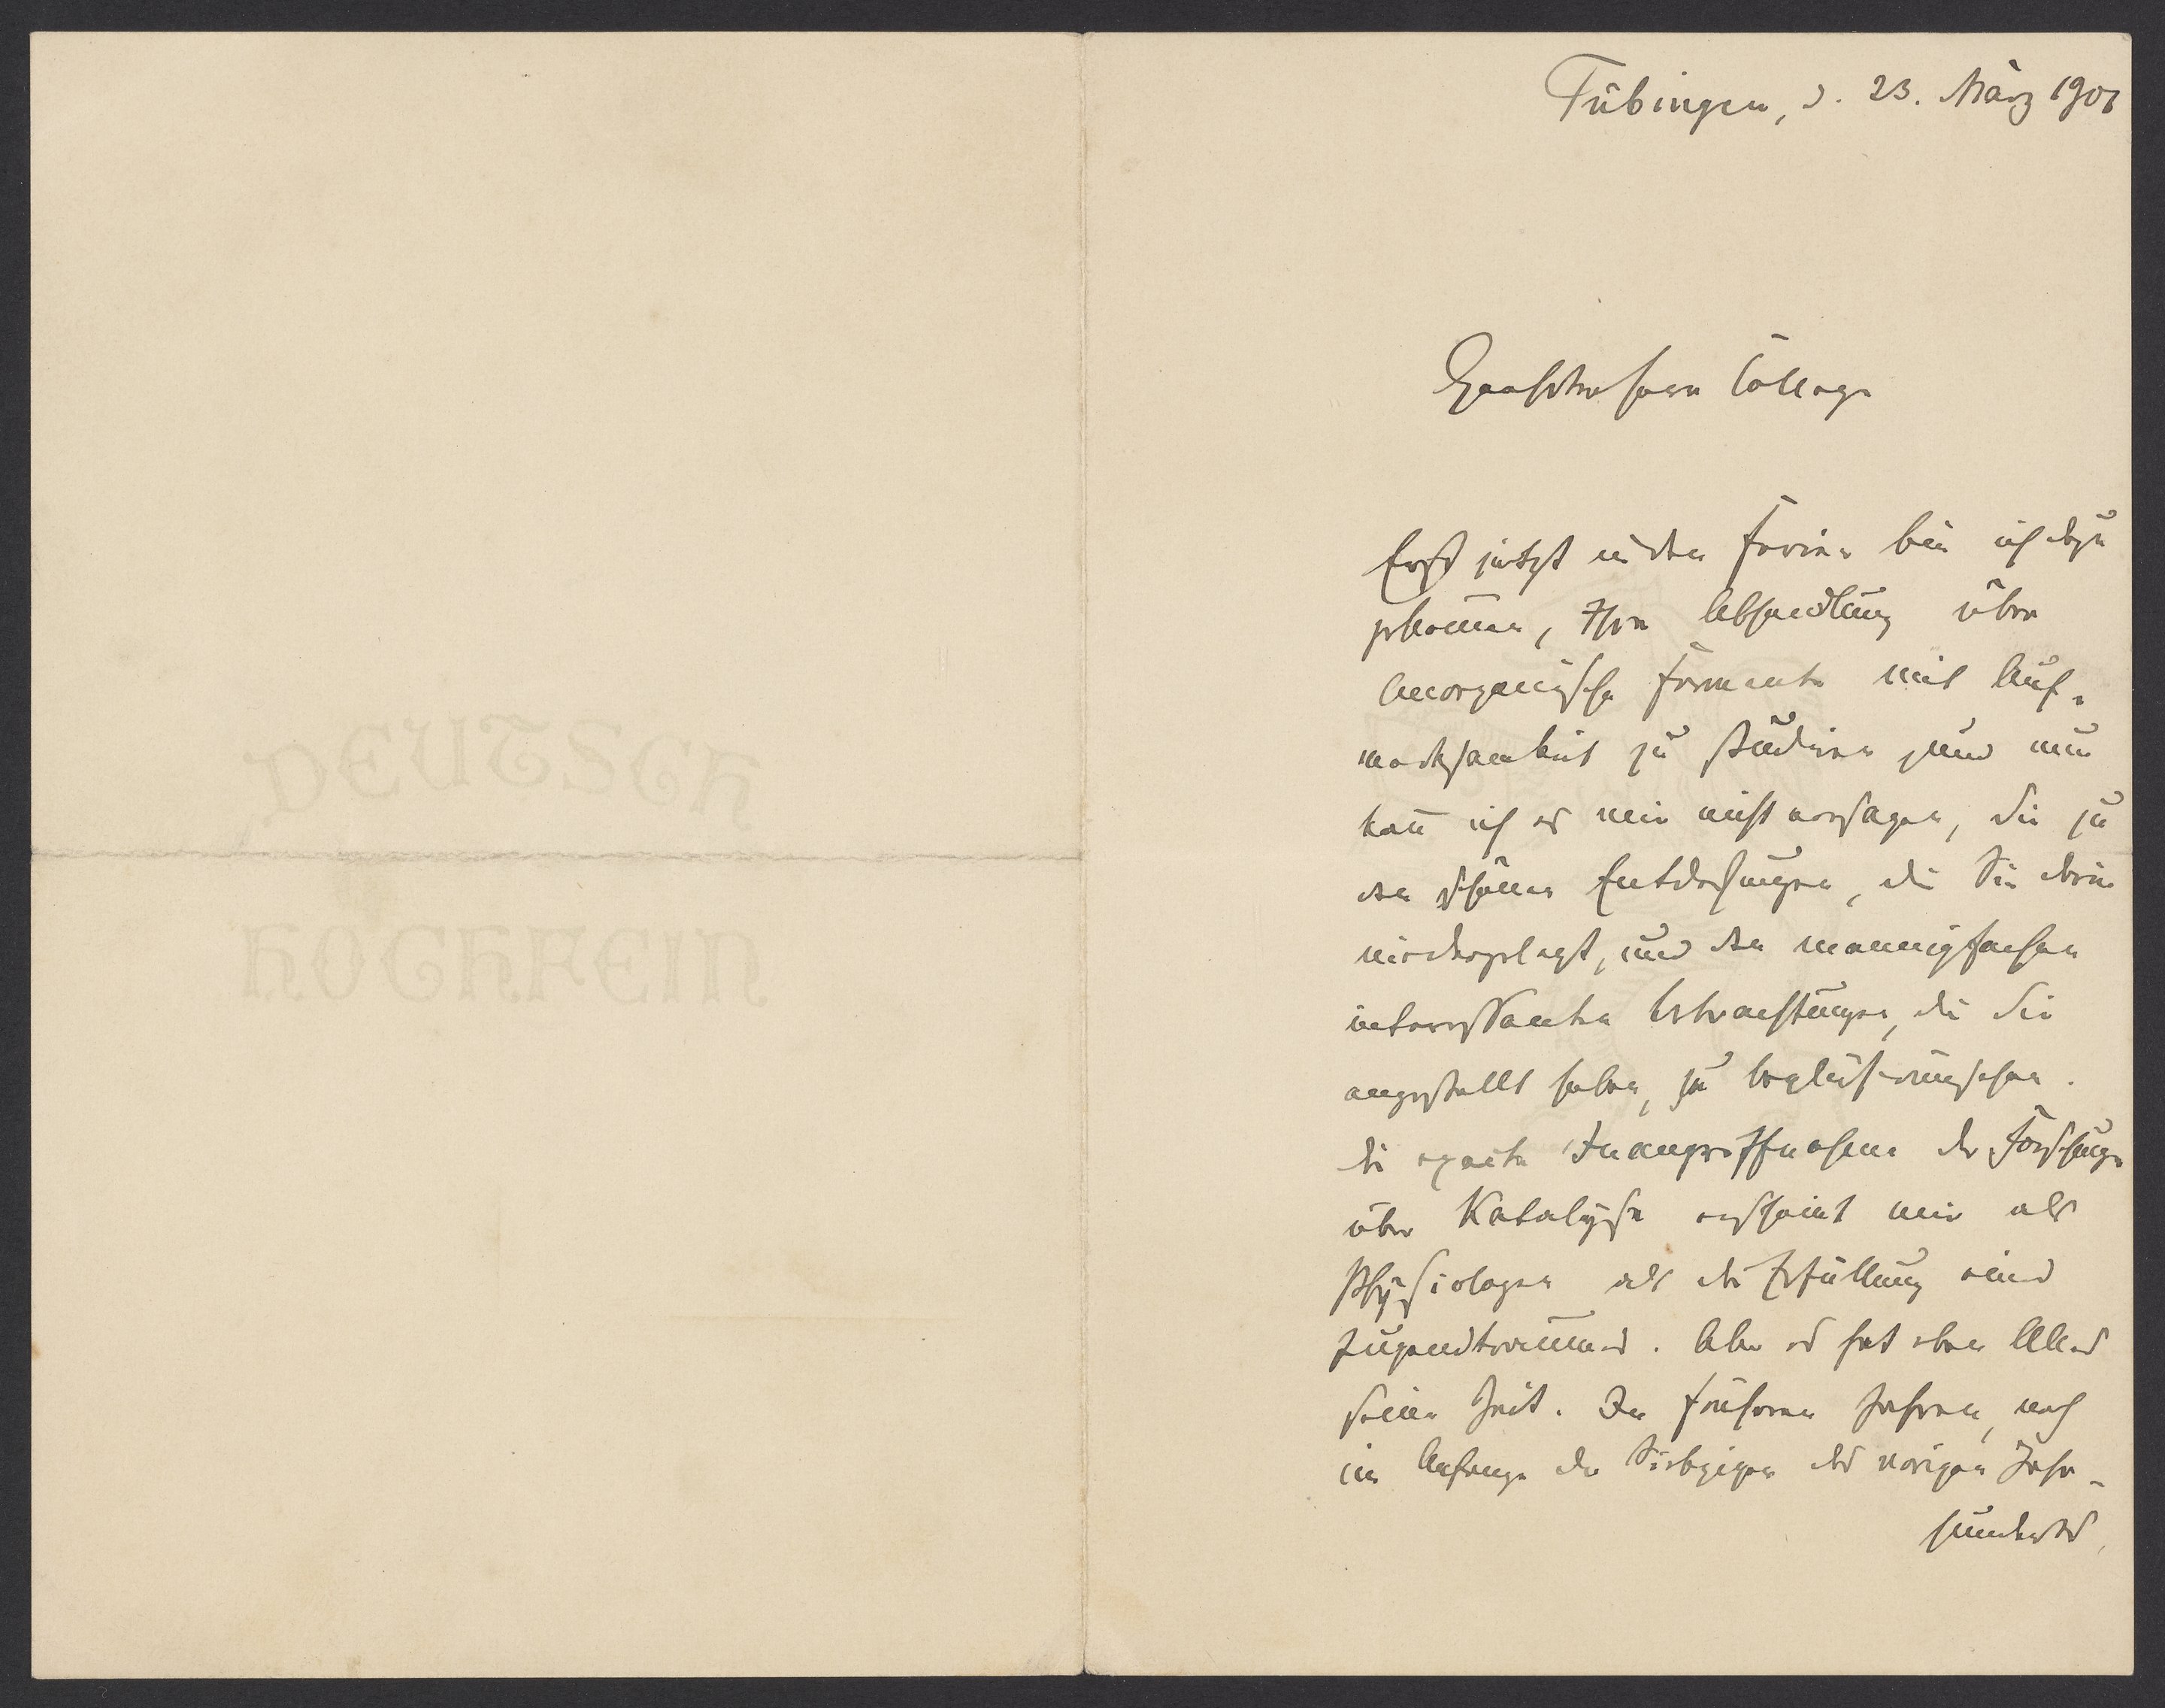 DEUTSCH
HOCHFEIN
Tübingen, d. 23. März 1901
Geehrtester Herr College
Erst jetzt in den Ferien bin ich dazu
gekommen, Ihre Abhandlung über
Anorganische Fermente mit Auf-
merksamkeit zu studiren, und nun
kann ich es mir nicht versagen, Sie zu
den schönen Entdeckungen, die Sie darin
niedergelegt, und den mannigfachen
interessanten Betrachtungen, die Sie
angestellt haben, zu beglückwünschen.
Die exacte Inangriffnahme der Forschungen
über Katalyse erscheint mir als
Physiologen als die Erfüllung eines
Jugendtraumes. Aber es hat eben Alles
seine Zeit. In früheren Jahren, noch
im Anfange der Siebziger des vorigen Jahr-
hunderts,